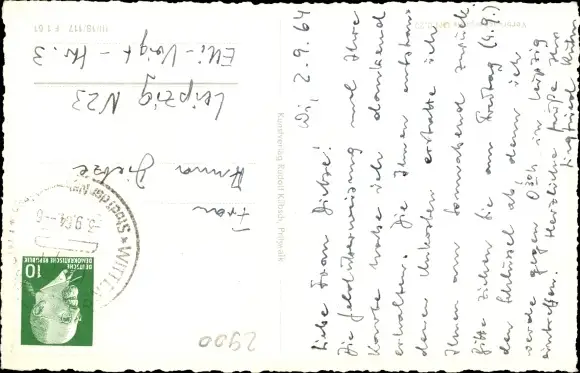 Wi, 2.9.64
Liebe Frau Dietze!
Die Geldüberweisung und Ihre
Karte habe ich dankend
erhalten. Die Ihnen entstan-
denen Unkosten erstatte ich
Ihnen am Sonnabend zurück.
Bitte ziehen Sie am Freitag (4.9.)
den Schlüssel ab, denn ich
werde gegen 0 Uhr in Leipzig
eintreffen. Herzliche Grüße Ihr
Siegfried
Kunstverlag Rudolf Pritzsch, Prerow
Frau
Anna Dietze
Leipzig N23
Elli-Voigt-Str. 3
III/18/117 F 1 61
WITTE
3.9.64-6
10
DEUTSCHE
DEMOKRATISCHE REPUBLIK
2900